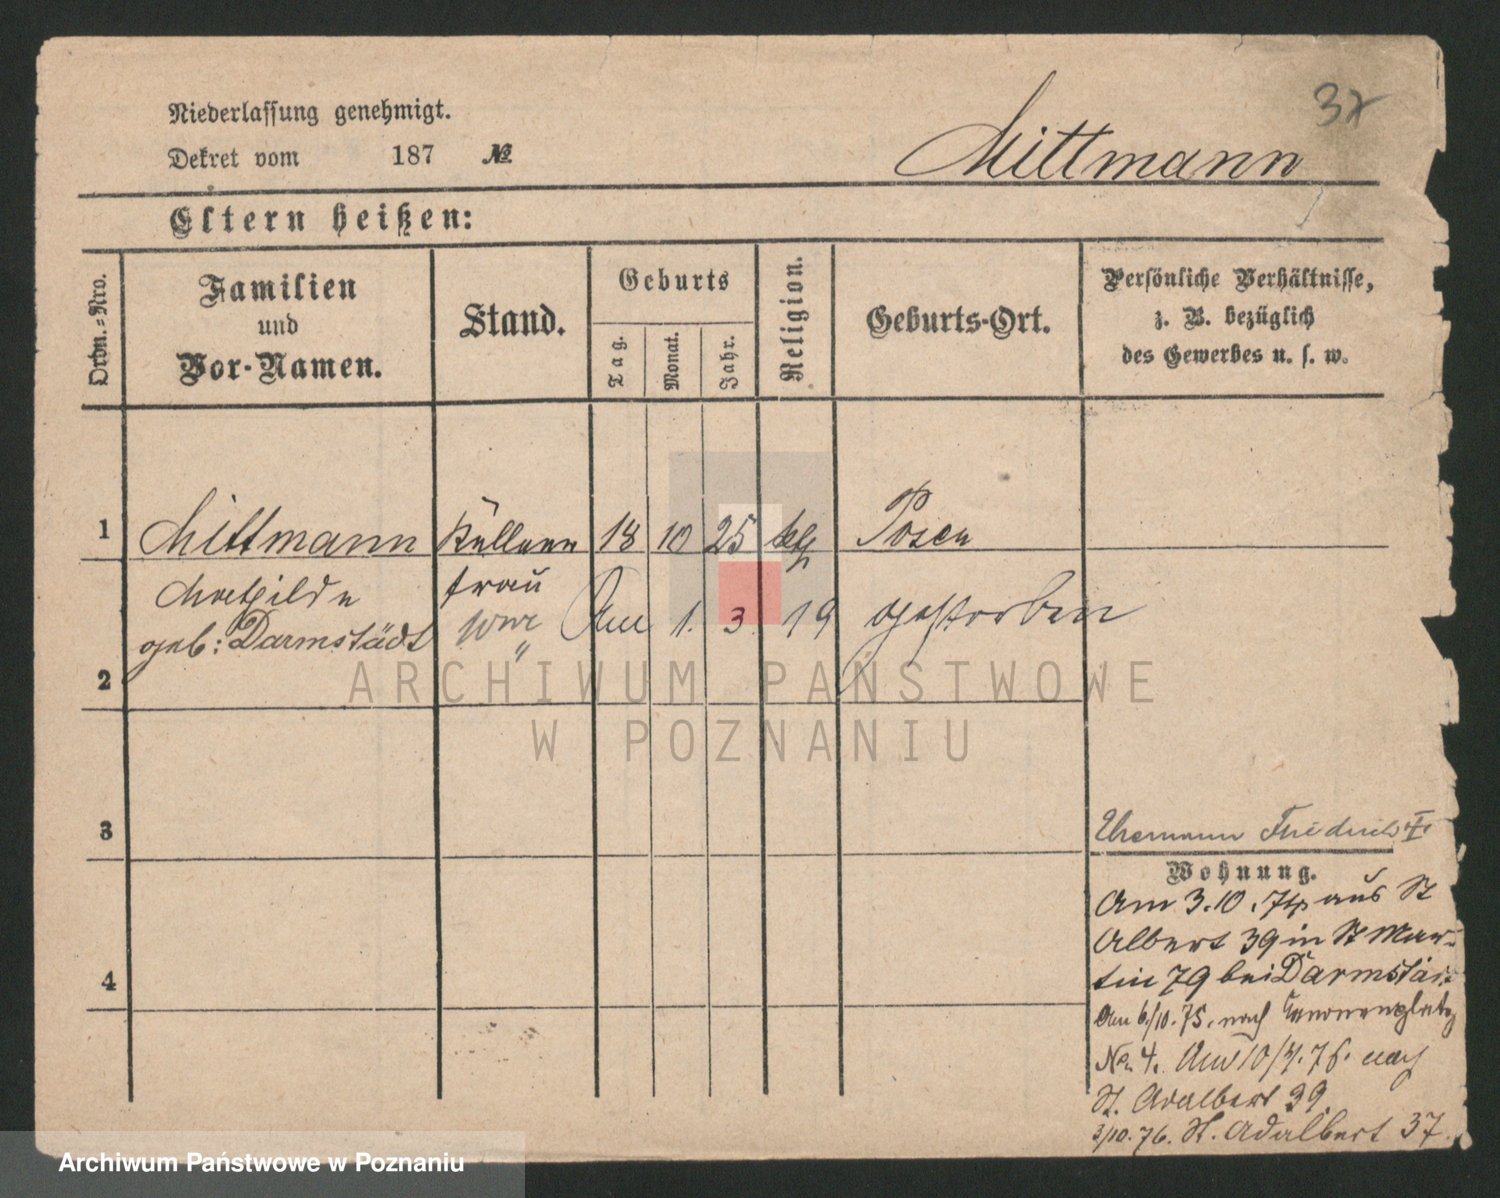 Niederlassung genehmigt.
37
Dekret vom 187 №
Mittmann
Eltern heißen:
Ordn.=Nro.
Familien
und
Vor-Namen.
Stand.
Geburts
Tag.
Monat.
Jahr.
Religion.
Geburts-Ort.
Persönliche Verhältnisse,
z. B. bezüglich
des Gewerbes u. s. w.
1 Mittmann Kellner 18 10 25 Posen
Mathilde frau
geb: Darmstädt Am 1. 3. 19 gestorben
2
ARCHIWUM PAŃSTWOWE
W POZNANIU
3
Ehemann Friedrich
Wohnung.
Am 3.10.74 aus St
Albert 39 in St Mar-
tin 79 bei Darmstädt
Am 6/10.75. nach Kanonenplatz
No 4. Am 10/4.76. nach
St. Adalbert 39.
3/10.76. St. Adalbert 37.
4
Archiwum Państwowe w Poznaniu